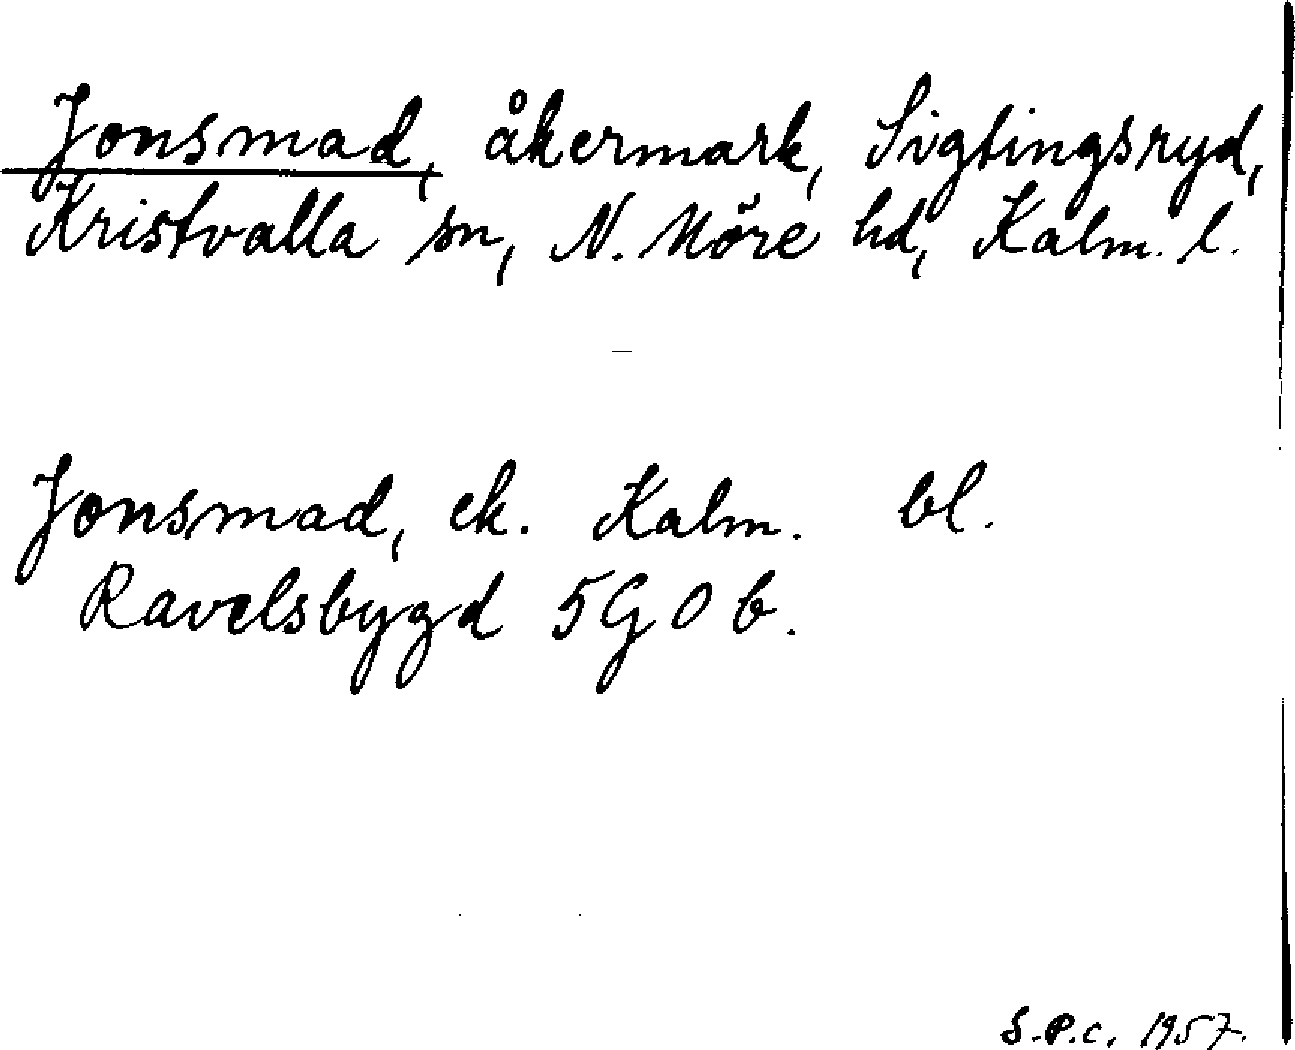 Jonsmad, åkermark, Sigtingsryd,
Kristvalla sn, N. Möre hd, Kalm. l.
Jonsmad, ek. Kalm. bl.
Ravelsbygd 5G0b.
S.P.C. 1957.